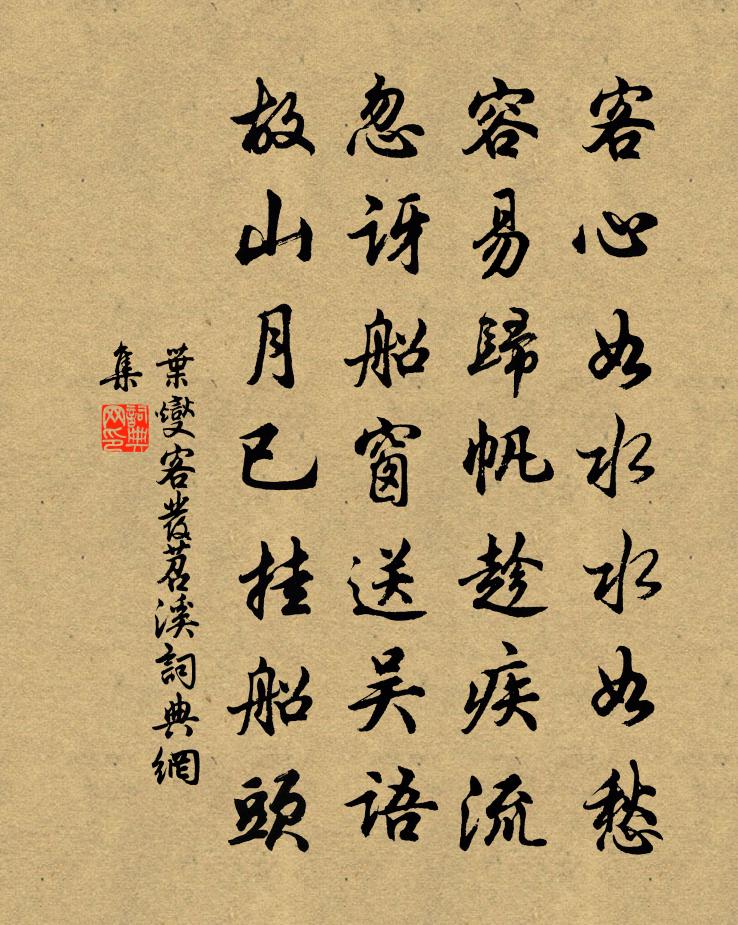 客心如水水如愁
容易歸帆趁疾流
忽訝船窗送吴語
故山月已挂船頭
葉燮客發苕溪詞典網
集
詞典
网印